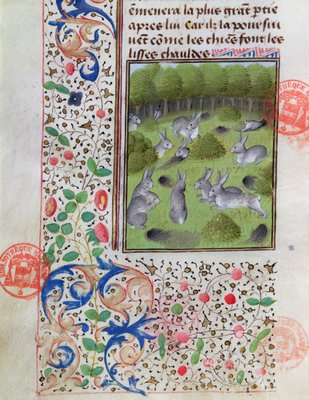 emenera la plus grāt ptie
apres lui Car ilz la pourſui
uēt cōme les chiēs font les
liſſes chauldes